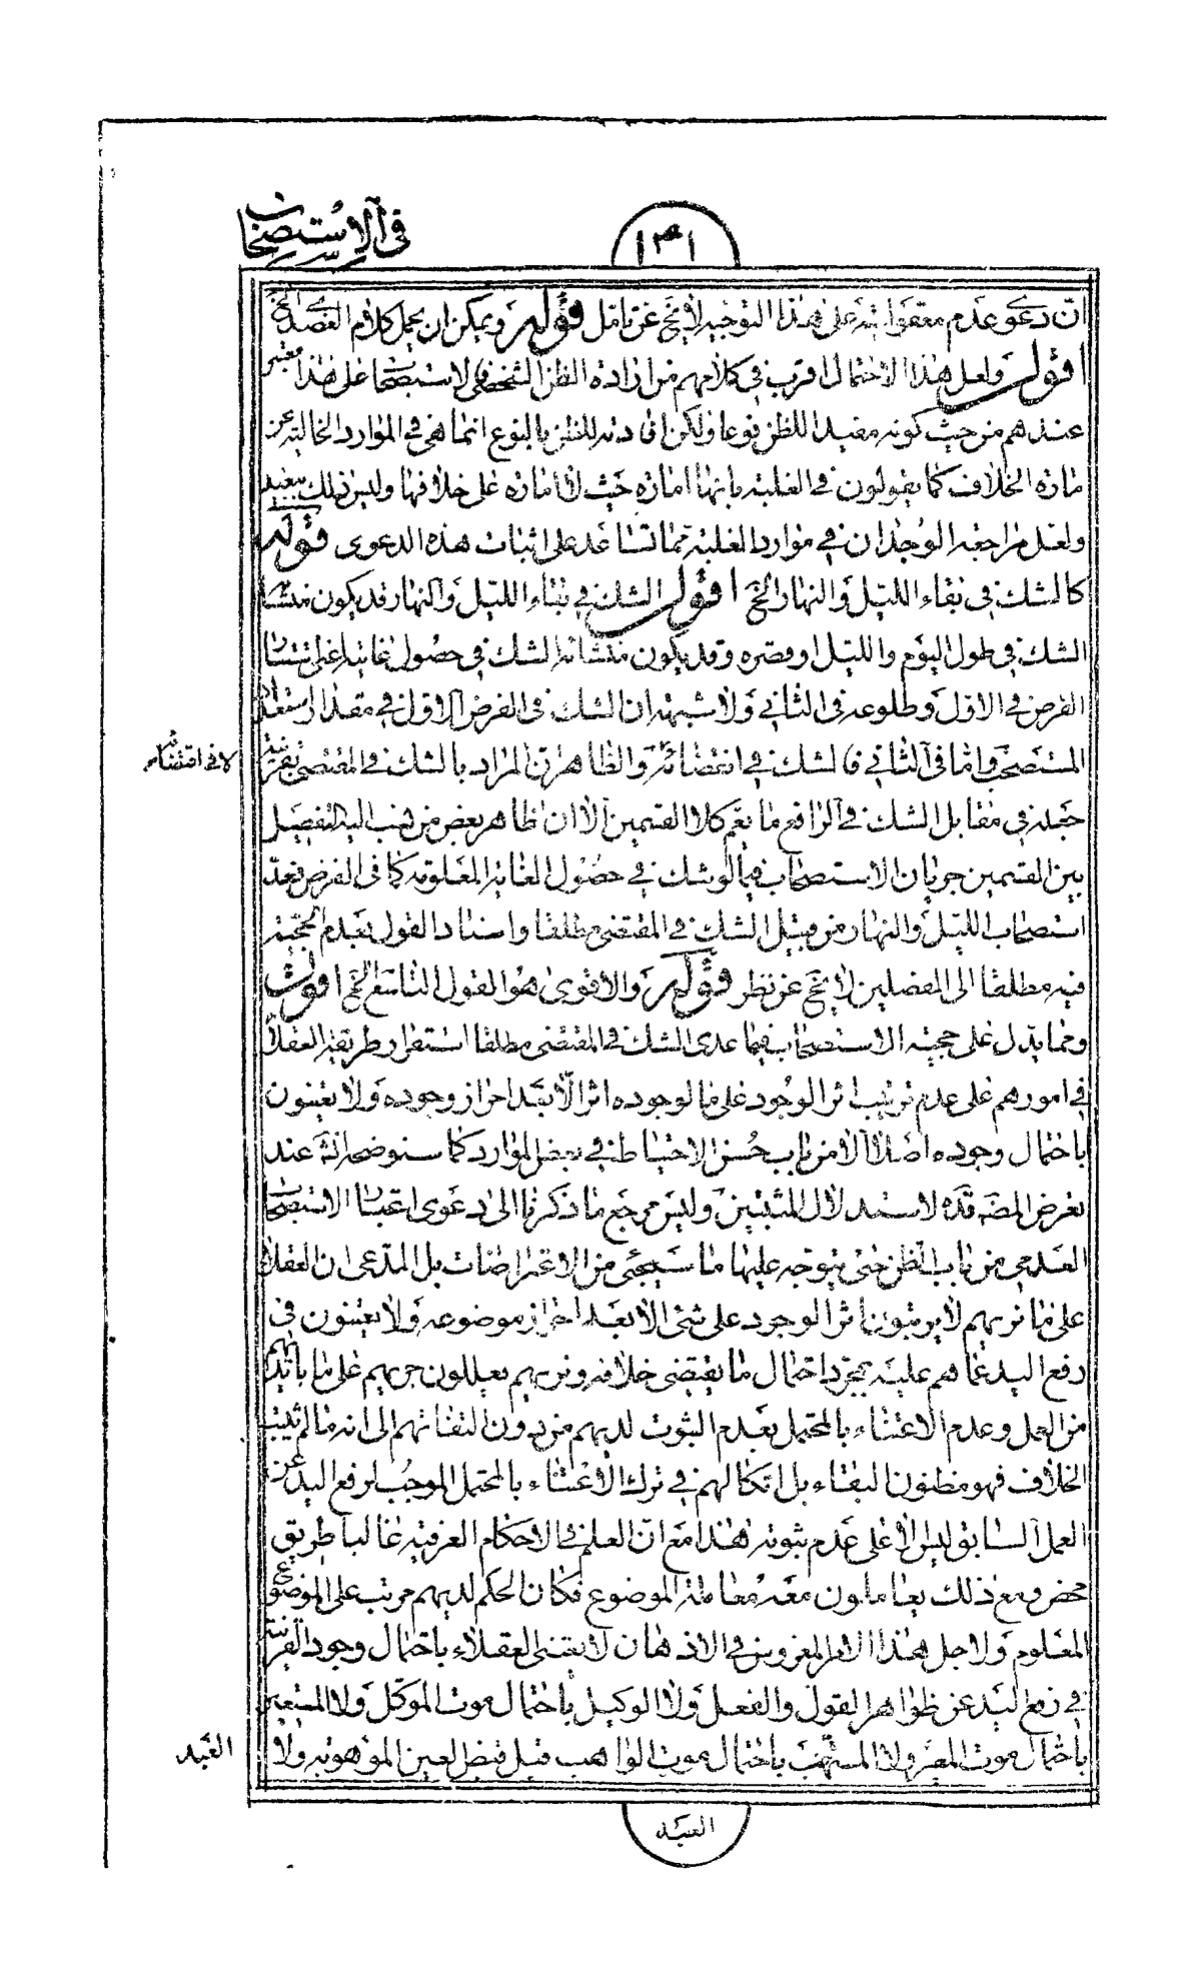 في الاستصحاب
١٣١
انّ دعوى عدم معقوليته على هذا التوجيه لا يخ عن تامل قوله ويمكن ان يحمل كلام العضدى الخ
اقول ولعل هذا الاحتمال اقرب في كلامهم من ارادة الظن الشخصى فالاستصحاب على هذا معتبر
عندهم من حيث كونه مفيدا للظن نوعا ولكن افادته للظن بالنوع انما هى في الموارد الخالية عن
مارة الخلاف كما يقولون في الغلبة بانها امارة حيث لا امارة على خلافها وليس ذلك ببعيد
ولعل مراجعة الوجدان في موارد الغلبة مما تساعد على اثبات هذه الدعوى قوله
كالشك في بقاء الليل والنهار الخ اقول الشك في بقاء الليل والنهار قد يكون منشأ
الشك في طول اليوم والليل او قصره وقد يكون منشائه الشك في حصول غايته اعنى استتار
القرص في الاول وطلوعه في الثاني ولا شبهة ان الشك في الفرض الاول في مقدار استعداد
المستصحب واما في الثاني فالشك في انقضائه والظاهر ان المراد بالشك في المقتضى بقرينة
لا في اقتضائه
جعله في مقابل الشك في الرافع ما يعم كلا القسمين الا ان ظاهر بعض من ذهب اليه التفصيل
بين القسمين جريان الاستصحاب فيما لو شك في حصول الغاية المعلومة كما في الفرض فعدّ
استصحاب الليل والنهار من قبيل الشك في المقتضى مطلقا واسناد القول بعدم الحجية
فيه مطلقا الى المفصلين لا يخ عن نظر قوله والاقوى هو القول التاسع الخ اقول
ومما يدل على حجية الاستصحاب فيما عدى الشك في المقتضى مطلقا استقرار طريقة العقلاء
في امورهم على عدم ترتيب اثر الوجود على ما لوجوده اثر الّا بعد احراز وجوده ولا يعتنون
باحتمال وجوده اصلا الا من باب حسن الاحتياط في بعض الموارد كما سنوضحه انش عند
تعرض المصه قده لاستدلال المثبتين وليس مرجع ما ذكرنا الى دعوى اعتبار الاستصحاب
العدمى من باب الظن حتى يتوجه عليها ما سيجئى من الاعتراضات بل المدعى ان العقلاء
على ما نريهم لا يرتبون اثر الوجود على شئ الا بعد احراز موضوعه ولا يعتنون في
رفع اليد عما هم عليه بمجرد احتمال ما يقتضى خلافه ونريهم يعللون جريهم على ما بايديهم
من العمل وعدم الاعتناء بالمحتمل بعدم الثبوت لديهم من دون التفاتهم الى انه ما لم يثبت
الخلاف فهو مظنون البقاء بل اتكالهم في ترك الاعتناء بالمحتمل الموجب لرفع اليد عن
العمل السابق ليس الا على عدم ثبوته هذا مع ان العلم في الاحكام العرفية غالبا طريق
محض ومع ذلك يعاملون معه معاملة الموضوع فكان الحكم لديهم مرتب على الموضوع
المعلوم ولاجل هذا الامر المغروس في الاذهان لا يعتنى العقلاء باحتمال وجود القرينة
في رفع اليد عن ظواهر القول والفعل ولا الوكيل باحتمال موت الموكل ولا المستعير
باحتمال موت المعير ولا المستهب باحتمال موت الواهب قبل قبض العين الموهوبة ولا
العبد
العبد